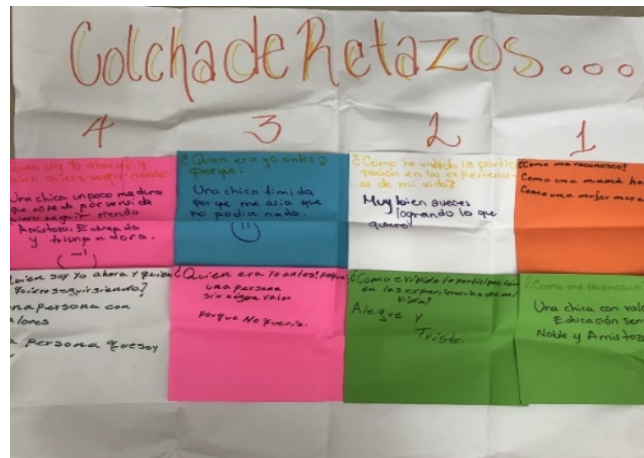 Colcha de Retazos...
4 3 2 1
soy yo ahora y
quien quiero seguir siendo
Una chica un poco madura
que no se da por vensida
quiero seguir siendo
Amistosa. Educada
y triunfadora.
¿Quien era yo antes?
porque:
Una chica timida
porque me asia que
no podia nada.
¿Como he vivido la partici
pación en las experienci
as de mi vida?
Muy bien aveces
logrando lo que
quiero.
¿Como me reconosco?
Como una mamá
Como una mujer
Quien soy yo ahora y quien
quiero seguir siendo?
una persona con
valores
persona que soy
¿Quien era yo antes?
una persona
sin ningun valor
porque No queria.
¿Como e vivido la participación
en las experiencias de mi
vida?
Alegre y
Triste.
¿Como me reconosco?
Una chica con
Educación
Noble y